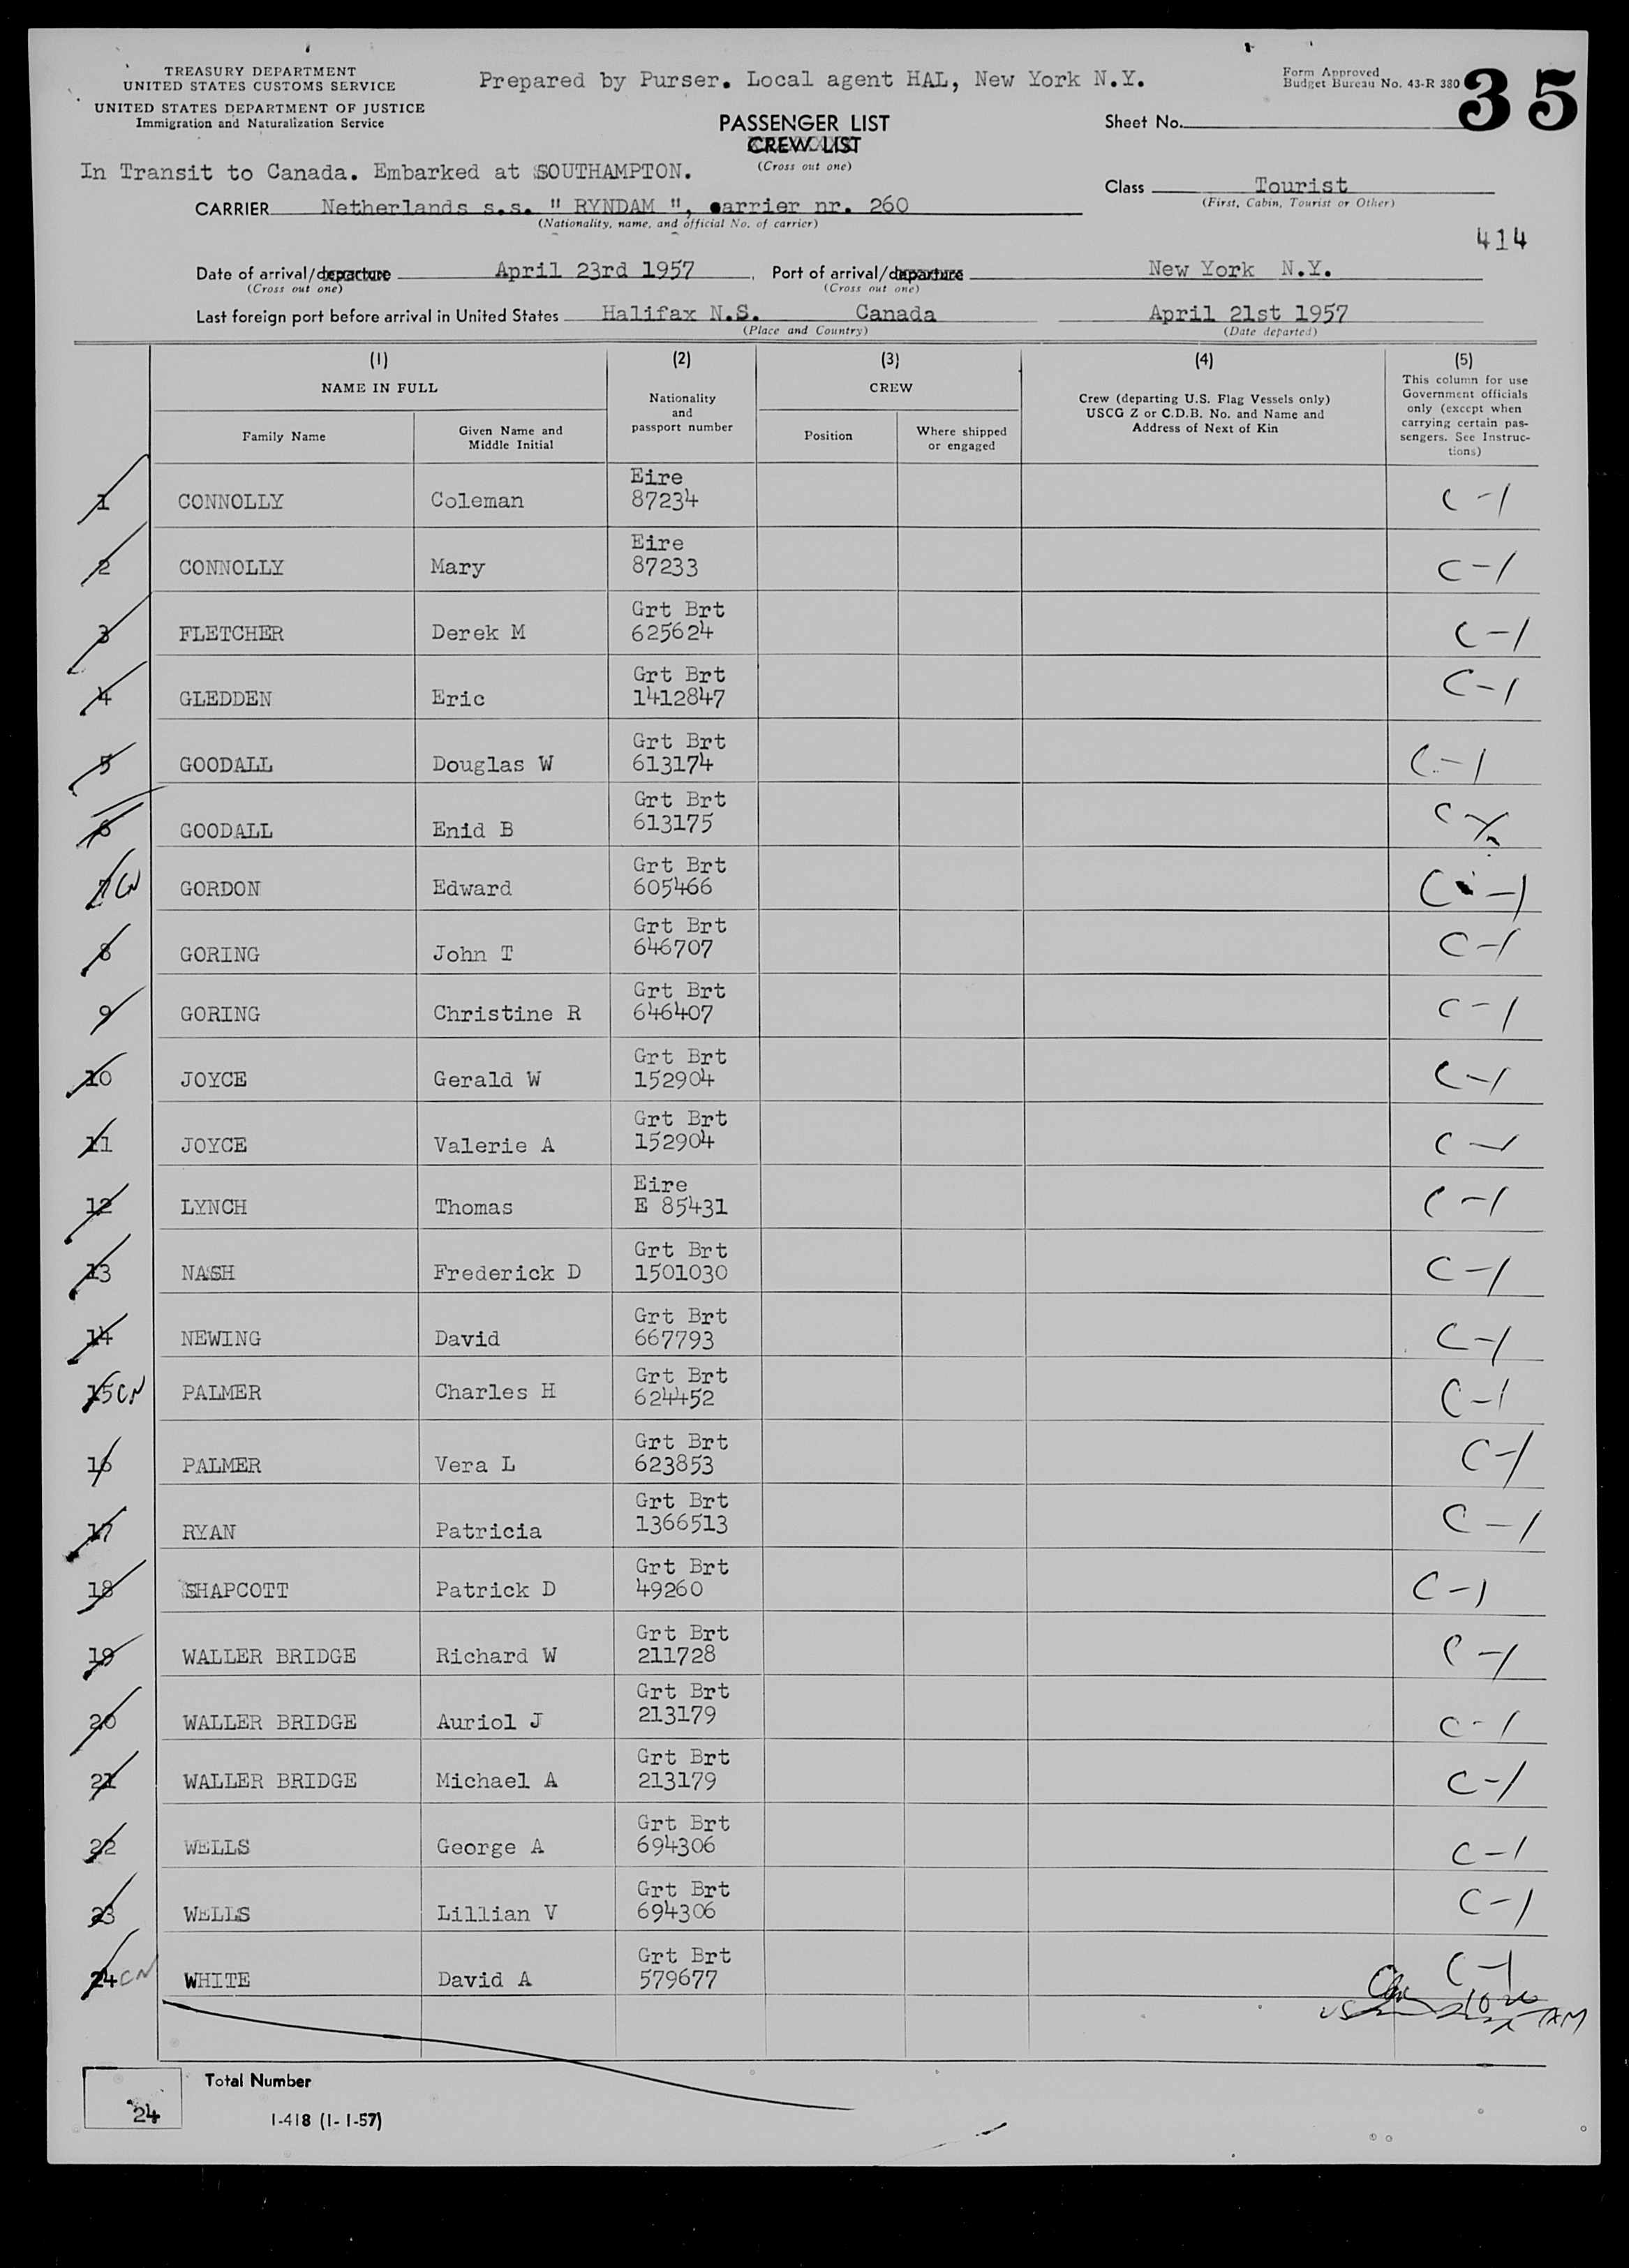 TREASURY DEPARTMENT
UNITED STATES CUSTOMS SERVICE
UNITED STATES DEPARTMENT OF JUSTICE
Immigration and Naturalization Service
Prepared by Purser. Local agent HAL, New York N.Y.
Form Approved
Budget Bureau No. 43-R 380
35
PASSENGER LIST
CREW LIST
(Cross out one)
Sheet No.
In Transit to Canada. Embarked at SOUTHAMPTON.
Class Tourist
(First, Cabin, Tourist or Other)
CARRIER Netherlands s.s. " RYNDAM ", carrier nr. 260
(Nationality, name, and official No. of carrier)
414
Date of arrival/departure April 23rd 1957 Port of arrival/departure New York N.Y.
(Cross out one) (Cross out one)
Last foreign port before arrival in United States Halifax N.S. Canada April 21st 1957
(Place and Country) (Date departed)
(1) (2) (3) (4) (5)
NAME IN FULL
Family Name
Given Name and Middle Initial
Nationality and passport number
CREW
Position
Where shipped or engaged
Crew (departing U.S. Flag Vessels only)
USCG Z or C.D.B. No. and Name and
Address of Next of Kin
This column for use
Government officials
only (except when
carrying certain pas-
sengers. See Instruc-
tions)
1 CONNOLLY Coleman Eire 87234 C-1
2 CONNOLLY Mary Eire 87233 C-1
3 FLETCHER Derek M Grt Brt 625624 C-1
4 GLEDDEN Eric Grt Brt 1412847 C-1
5 GOODALL Douglas W Grt Brt 613174 C-1
6 GOODALL Enid B Grt Brt 613175 C-1
7 CN GORDON Edward Grt Brt 605466 C-1
8 GORING John T Grt Brt 646707 C-1
9 GORING Christine R Grt Brt 646407 C-1
10 JOYCE Gerald W Grt Brt 152904 C-1
11 JOYCE Valerie A Grt Brt 152904 C-1
12 LYNCH Thomas Eire E 85431 C-1
13 NASH Frederick D Grt Brt 1501030 C-1
14 NEWING David Grt Brt 667793 C-1
15 CN PALMER Charles H Grt Brt 624452 C-1
16 PALMER Vera L Grt Brt 623853 C-1
17 RYAN Patricia Grt Brt 1366513 C-1
18 SHAPCOTT Patrick D Grt Brt 49260 C-1
19 WALLER BRIDGE Richard W Grt Brt 211728 C-1
20 WALLER BRIDGE Auriol J Grt Brt 213179 C-1
21 WALLER BRIDGE Michael A Grt Brt 213179 C-1
22 WELLS George A Grt Brt 694306 C-1
23 WELLS Lillian V Grt Brt 694306 C-1
24 CN WHITE David A Grt Brt 579677 C-1
AM
Total Number
24
I-418 (1-1-57)